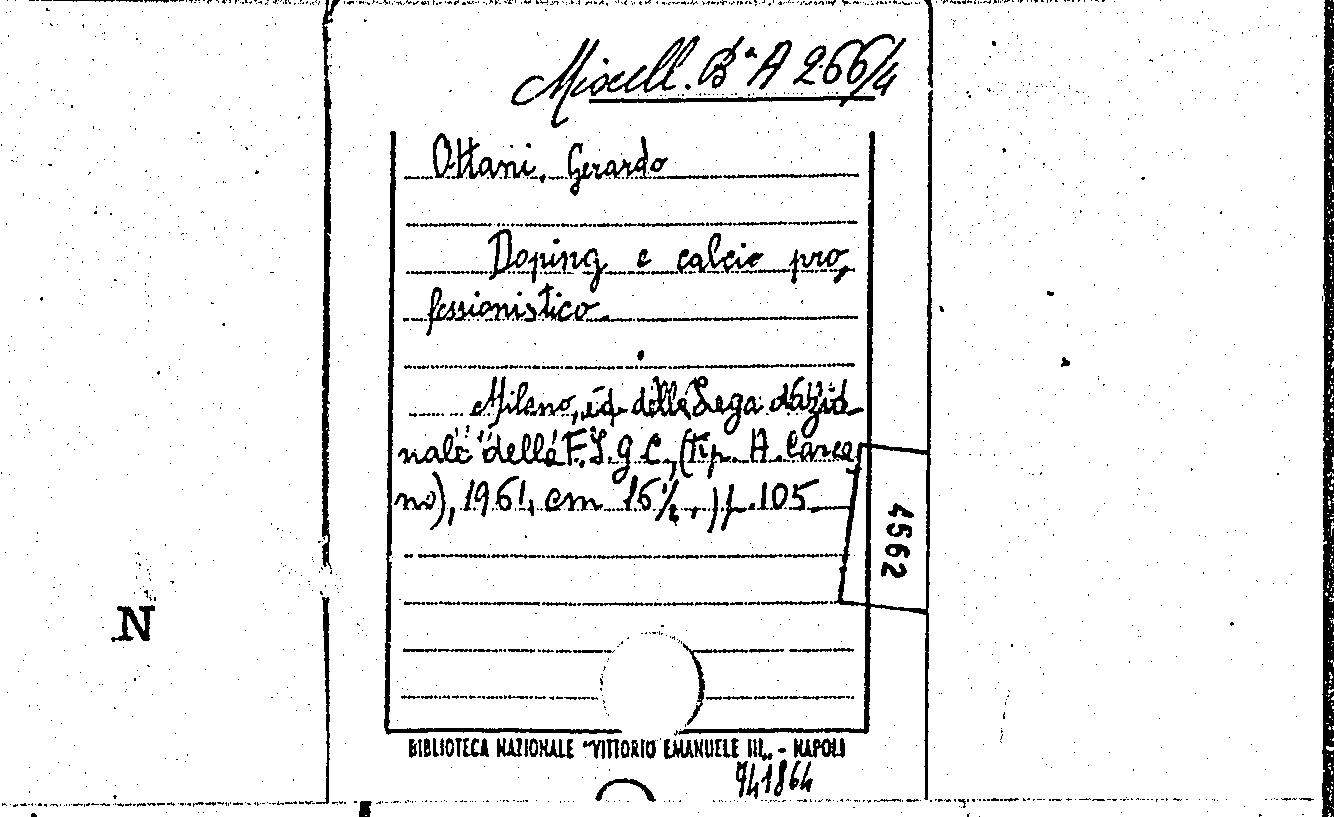 Miscell. Bª A 266/4
Ottani, Gerardo
Doping e calcio pro,
fessionistico.
Milano, ed. della Lega Nazio-
nale della F.I.G.C., (tip. A. Carca
no), 1961, cm 16½, pp. 105.
4562
N
BIBLIOTECA NAZIONALE "VITTORIO EMANUELE III„ - NAPOLI
941864